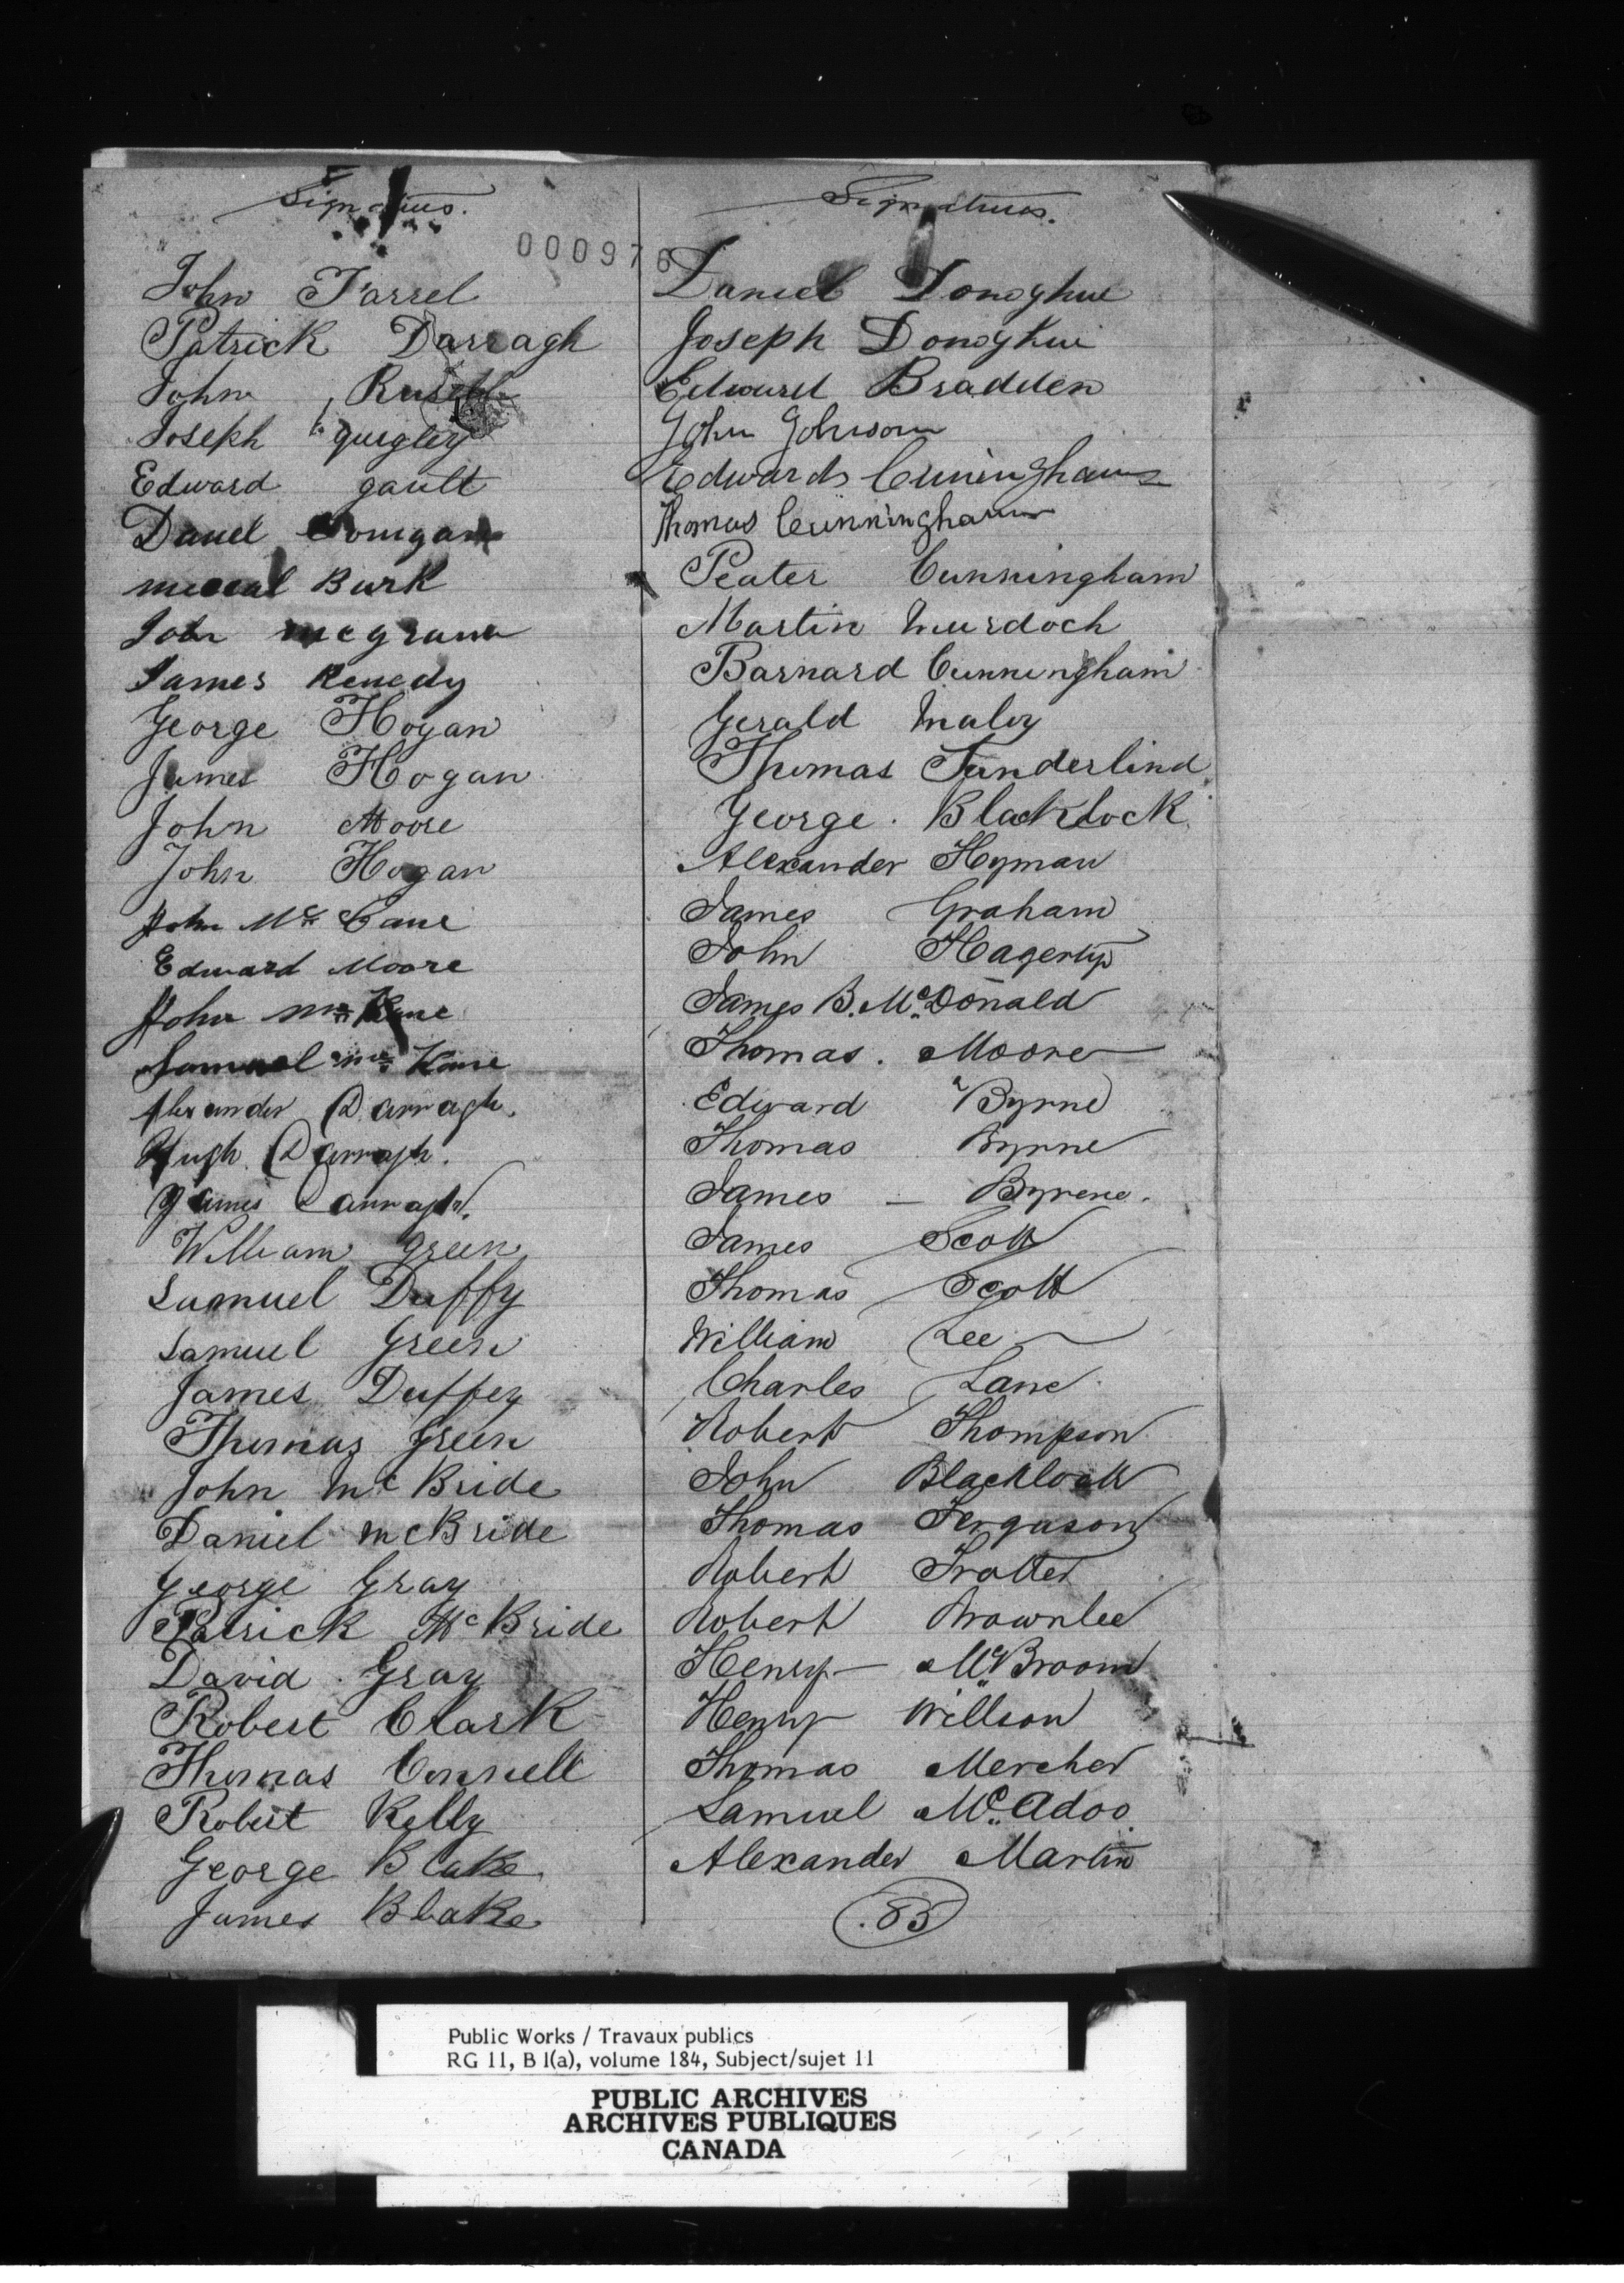 Signatures.
John Farrel
Patrick Darragh
John Rusell
Joseph quigley
Edward gault
Dauel
Burk
John mcgraw
James Kenedy
George Hogan
James Hogan
John Moore
John Hogan
John Mc Cane
Edward Moore
John Mc Kane
Samuel Mc Kane
Alexander Darragh.
Hugh Darragh.
James Darragh.
William Green
Samuel Duffy
Samuel Green
James Duffey
Thomas Green
John Mc Bride
Daniel McBride
George Gray
Patrick Mc Bride
David Gray
Robert Clark
Thomas Connell
Robert Kelly
George Blake
James Blake
Signatures.
000976
Daniel Donoghue
Joseph Donoghue
Edward Bradden
John Johnson
Edward Cuningham
Thomas Cunningham
Peater Cunningham
Martin Murdoch
Barnard Cunningham
Gerald Maloy
Thomas Sunderlind
George Blacklock
Alexander Hyman
James Graham
John Hagerty
James B. McDonald
Thomas. Moore
Edward Byrne
Thomas Byrne
James - Byrene.
James Scott
Thomas Scott
William Lee
Charles Lane
Robert Thompson
John Blacklock
Thomas Ferguson
Robert Trotter
Robert Brownlee
Henry McBroom
Henry Willson
Thomas Mercher
Samuel Mc Adoo.
Alexander Martin
85
Public Works / Travaux publics
RG 11, B 1(a), volume 184, Subject/sujet 11
PUBLIC ARCHIVES
ARCHIVES PUBLIQUES
CANADA